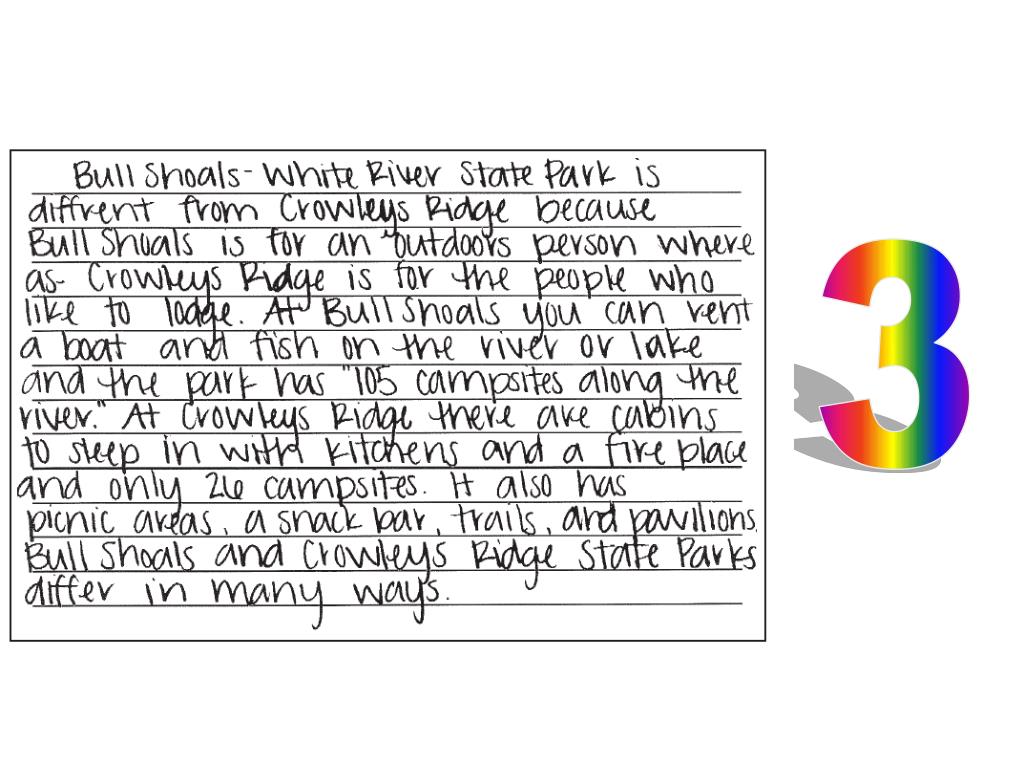 Bull Shoals-White River State Park is
diffrent from Crowleys Ridge because
Bull Shoals is for an "outdoors person where
as Crowleys Ridge is for the people who
like to lodge. At Bull Shoals you can rent
a boat and fish on the river or lake
and the park has "105 campsites along the
river." At Crowleys Ridge there are cabins
to sleep in with kitchens and a fire place
and only 26 campsites. It also has
picnic areas, a snack bar, trails, and pavilions.
Bull Shoals and Crowleys Ridge State Parks
differ in many ways.
3